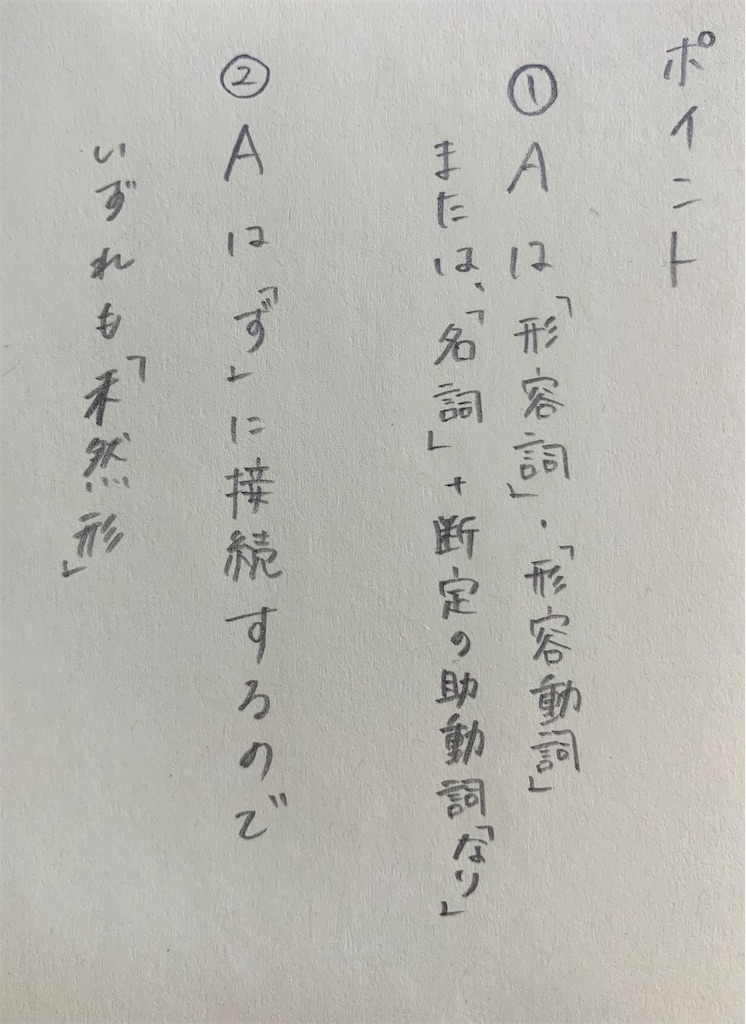 ポイント
① Aは「形容詞」・「形容動詞」
または、「名詞」+断定の助動詞「なり」
② Aは「ず」に接続するので
いずれも「未然形」